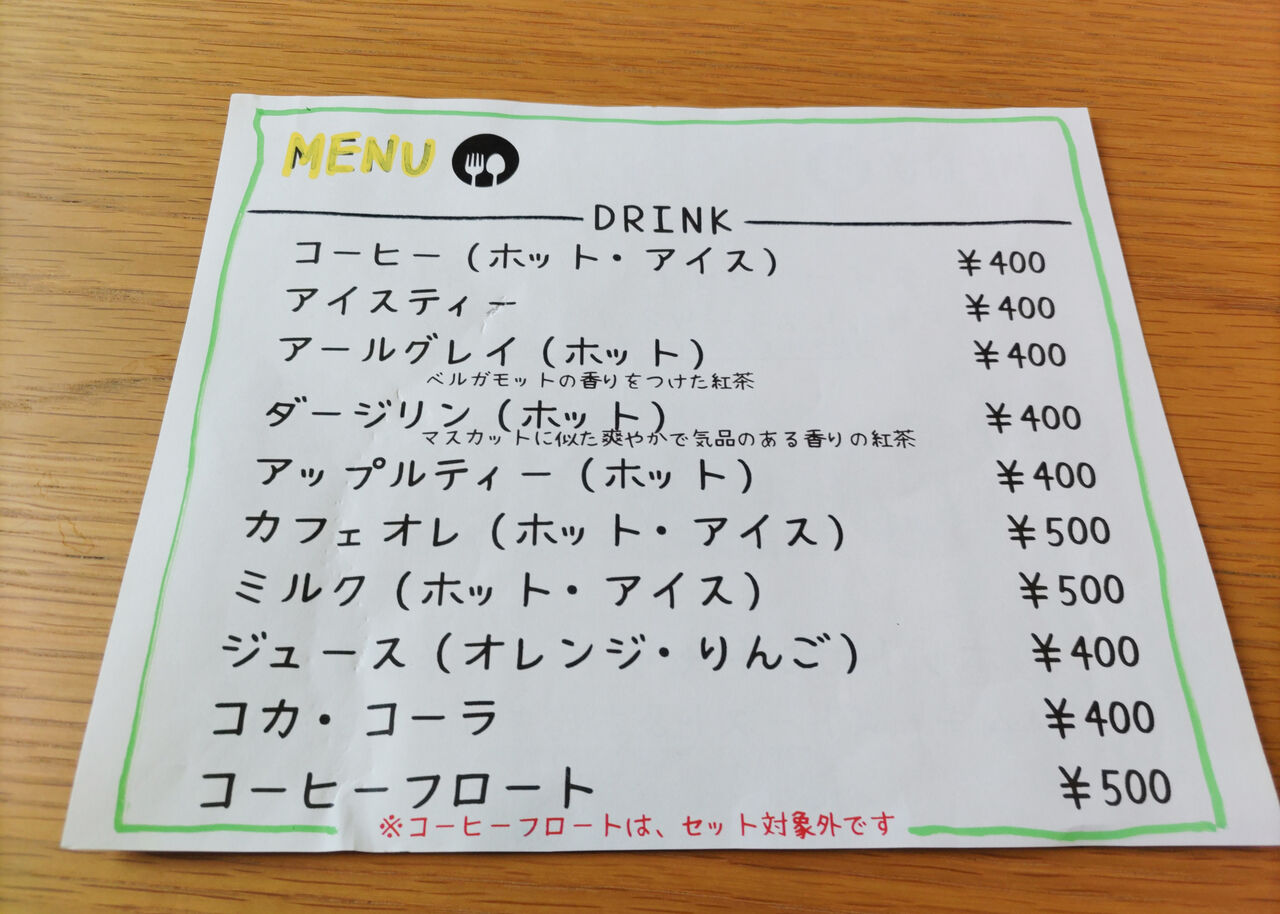 MENU
DRINK
コーヒー(ホット・アイス) ¥400
アイスティー ¥400
アールグレイ(ホット) ¥400
ベルガモットの香りをつけた紅茶
ダージリン(ホット) ¥400
マスカットに似た爽やかで気品のある香りの紅茶
アップルティー(ホット) ¥400
カフェオレ(ホット・アイス) ¥500
ミルク(ホット・アイス) ¥500
ジュース(オレンジ・りんご) ¥400
コカ・コーラ ¥400
コーヒーフロート ¥500
※コーヒーフロートは、セット対象外です